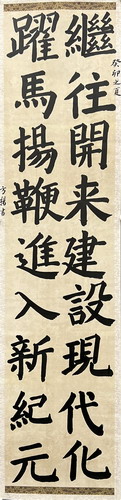 繼往開来建設現代化
躍馬揚鞭進入新紀元
癸卯之夏
方揚書